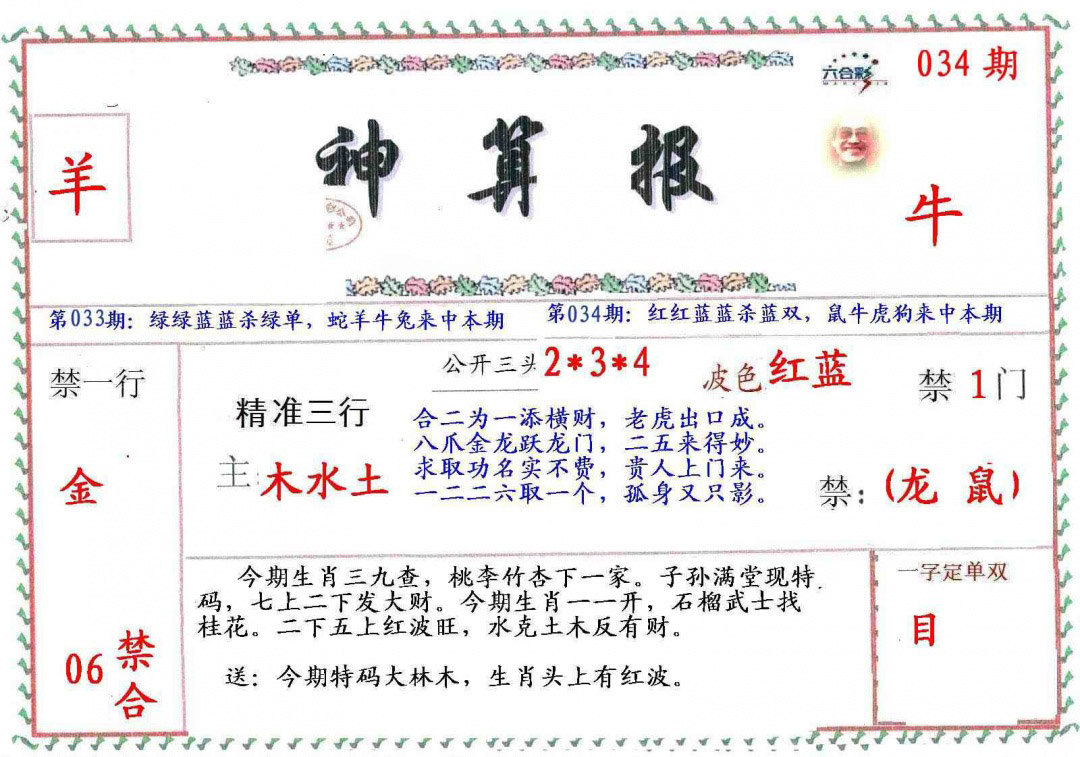 六合彩
034 期
羊
神算报
牛
第033期：绿绿蓝蓝杀绿单，蛇羊牛兔来中本期
第034期：红红蓝蓝杀蓝双，鼠牛虎狗来中本期
禁一行
金
06 禁合
精准三行
主：木水土
公开三头 2*3*4
波色 红蓝
禁 1 门
合二为一添横财，老虎出口成。
八爪金龙跃龙门，二五来得妙。
求取功名实不费，贵人上门来。
一二二六取一个，孤身又只影。
禁：(龙 鼠)
今期生肖三九查，桃李竹杏下一家。子孙满堂现特
码，七上二下发大财。今期生肖一一开，石榴武士找
桂花。二下五上红波旺，水克土木反有财。
送：今期特码大林木，生肖头上有红波。
一字定单双
目